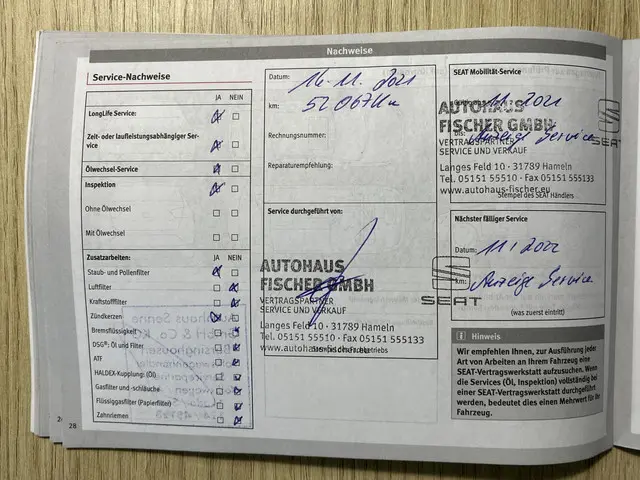 Nachweise
Service-Nachweise
JA NEIN
LongLife Service:
Zeit- oder laufleistungsabhängiger Ser-
vice
Ölwechsel-Service
Inspektion
Ohne Ölwechsel
Mit Ölwechsel
Zusatzarbeiten: JA NEIN
Staub- und Pollenfilter
Luftfilter
Kraftstofffilter
Zündkerzen
Bremsflüssigkeit
DSG®: Öl und Filter
ATF
HALDEX-Kupplung: (Öl)
Gasfilter und -schläuche
Flüssiggasfilter (Papierfilter)
Zahnriemen
28
Datum: 16.11.2021
km: 52067 Km
Rechnungsnummer:
Reparaturempfehlung:
Service durchgeführt von:
AUTOHAUS
FISCHER GMBH
VERTRAGSPARTNER
SERVICE UND VERKAUF
SEAT
Langes Feld 10 · 31789 Hameln
Tel. 05151 55510 · Fax 05151 555133
SEAT Mobilität-Service
11.2021
AUTOHAUS
FISCHER GMBH
bis: Anzeige Service
VERTRAGSPARTNER
SERVICE UND VERKAUF
SEAT
Langes Feld 10 · 31789 Hameln
Tel. 05151 55510 · Fax 05151 555133
www.autohaus-fischer.eu
Stempel des SEAT Händlers
Nächster fälliger Service
Datum: 11/2022
km: Anzeige Service
(was zuerst eintritt)
i Hinweis
Wir empfehlen Ihnen, zur Ausführung jeder
Art von Arbeiten an Ihrem Fahrzeug eine
SEAT-Vertragswerkstatt aufzusuchen. Wenn
die Services (Öl, Inspektion) vollständig bei
einer SEAT-Vertragswerkstatt durchgeführt
werden, bedeutet dies einen Mehrwert für Ihr
Fahrzeug.